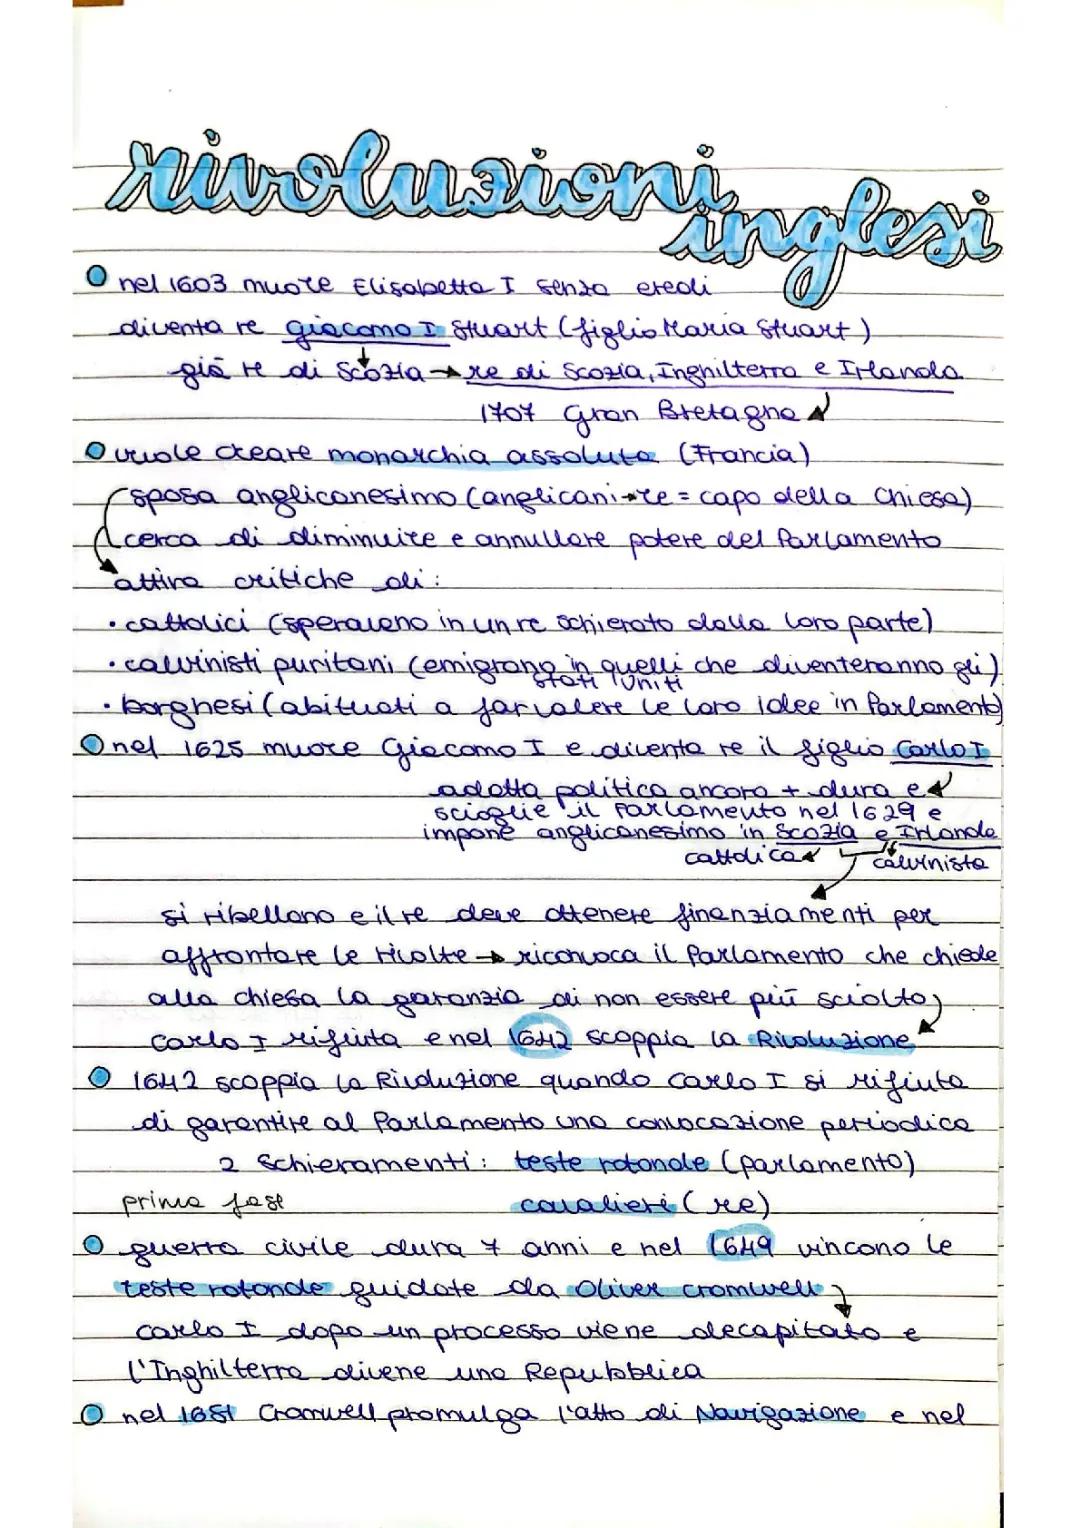 rivoluzioni
inglesi
nel 1603 muore Elisabetta I senza eredi
diventa re Giacomo I Stuart (figlio Maria Stuart)
già re di Scozia → re di Scozia, Inghilterra e Irlanda
1707 Gran Bretagna
vuole creare monarchia assoluta (Francia)
sposa anglicanesimo (anglicani → re = capo della Chiesa)
cerca di diminuire e annullare potere del Parlamento
attira critiche di:
• cattolici (speravano in un re schierato dalla loro parte)
• calvinisti puritani (emigrano in quelli che diventeranno gli)
Stati Uniti
• borghesi (abituati a far valere le loro idee in Parlamento)
nel 1625 muore Giacomo I e diventa re il figlio Carlo I
adotta politica ancora + dura e
scioglie il Parlamento nel 1629 e
impone anglicanesimo in Scozia e Irlanda
cattolica calvinista
si ribellano e il re deve ottenere finanziamenti per
affrontare le rivolte → riconvoca il Parlamento che chiede
alla chiesa la garanzia di non essere più sciolto,
Carlo I rifiuta e nel 1642 scoppia la Rivoluzione
1642 scoppia la Rivoluzione quando Carlo I si rifiuta
di garantire al Parlamento una convocazione periodica
2 schieramenti: teste rotonde (parlamento)
prima fase cavalieri (re)
guerra civile dura 7 anni e nel 1649 vincono le
teste rotonde guidate da Oliver Cromwell
Carlo I dopo un processo viene decapitato e
l'Inghilterra divene una Repubblica
nel 1651 Cromwell promulga l'atto di Navigazione e nel